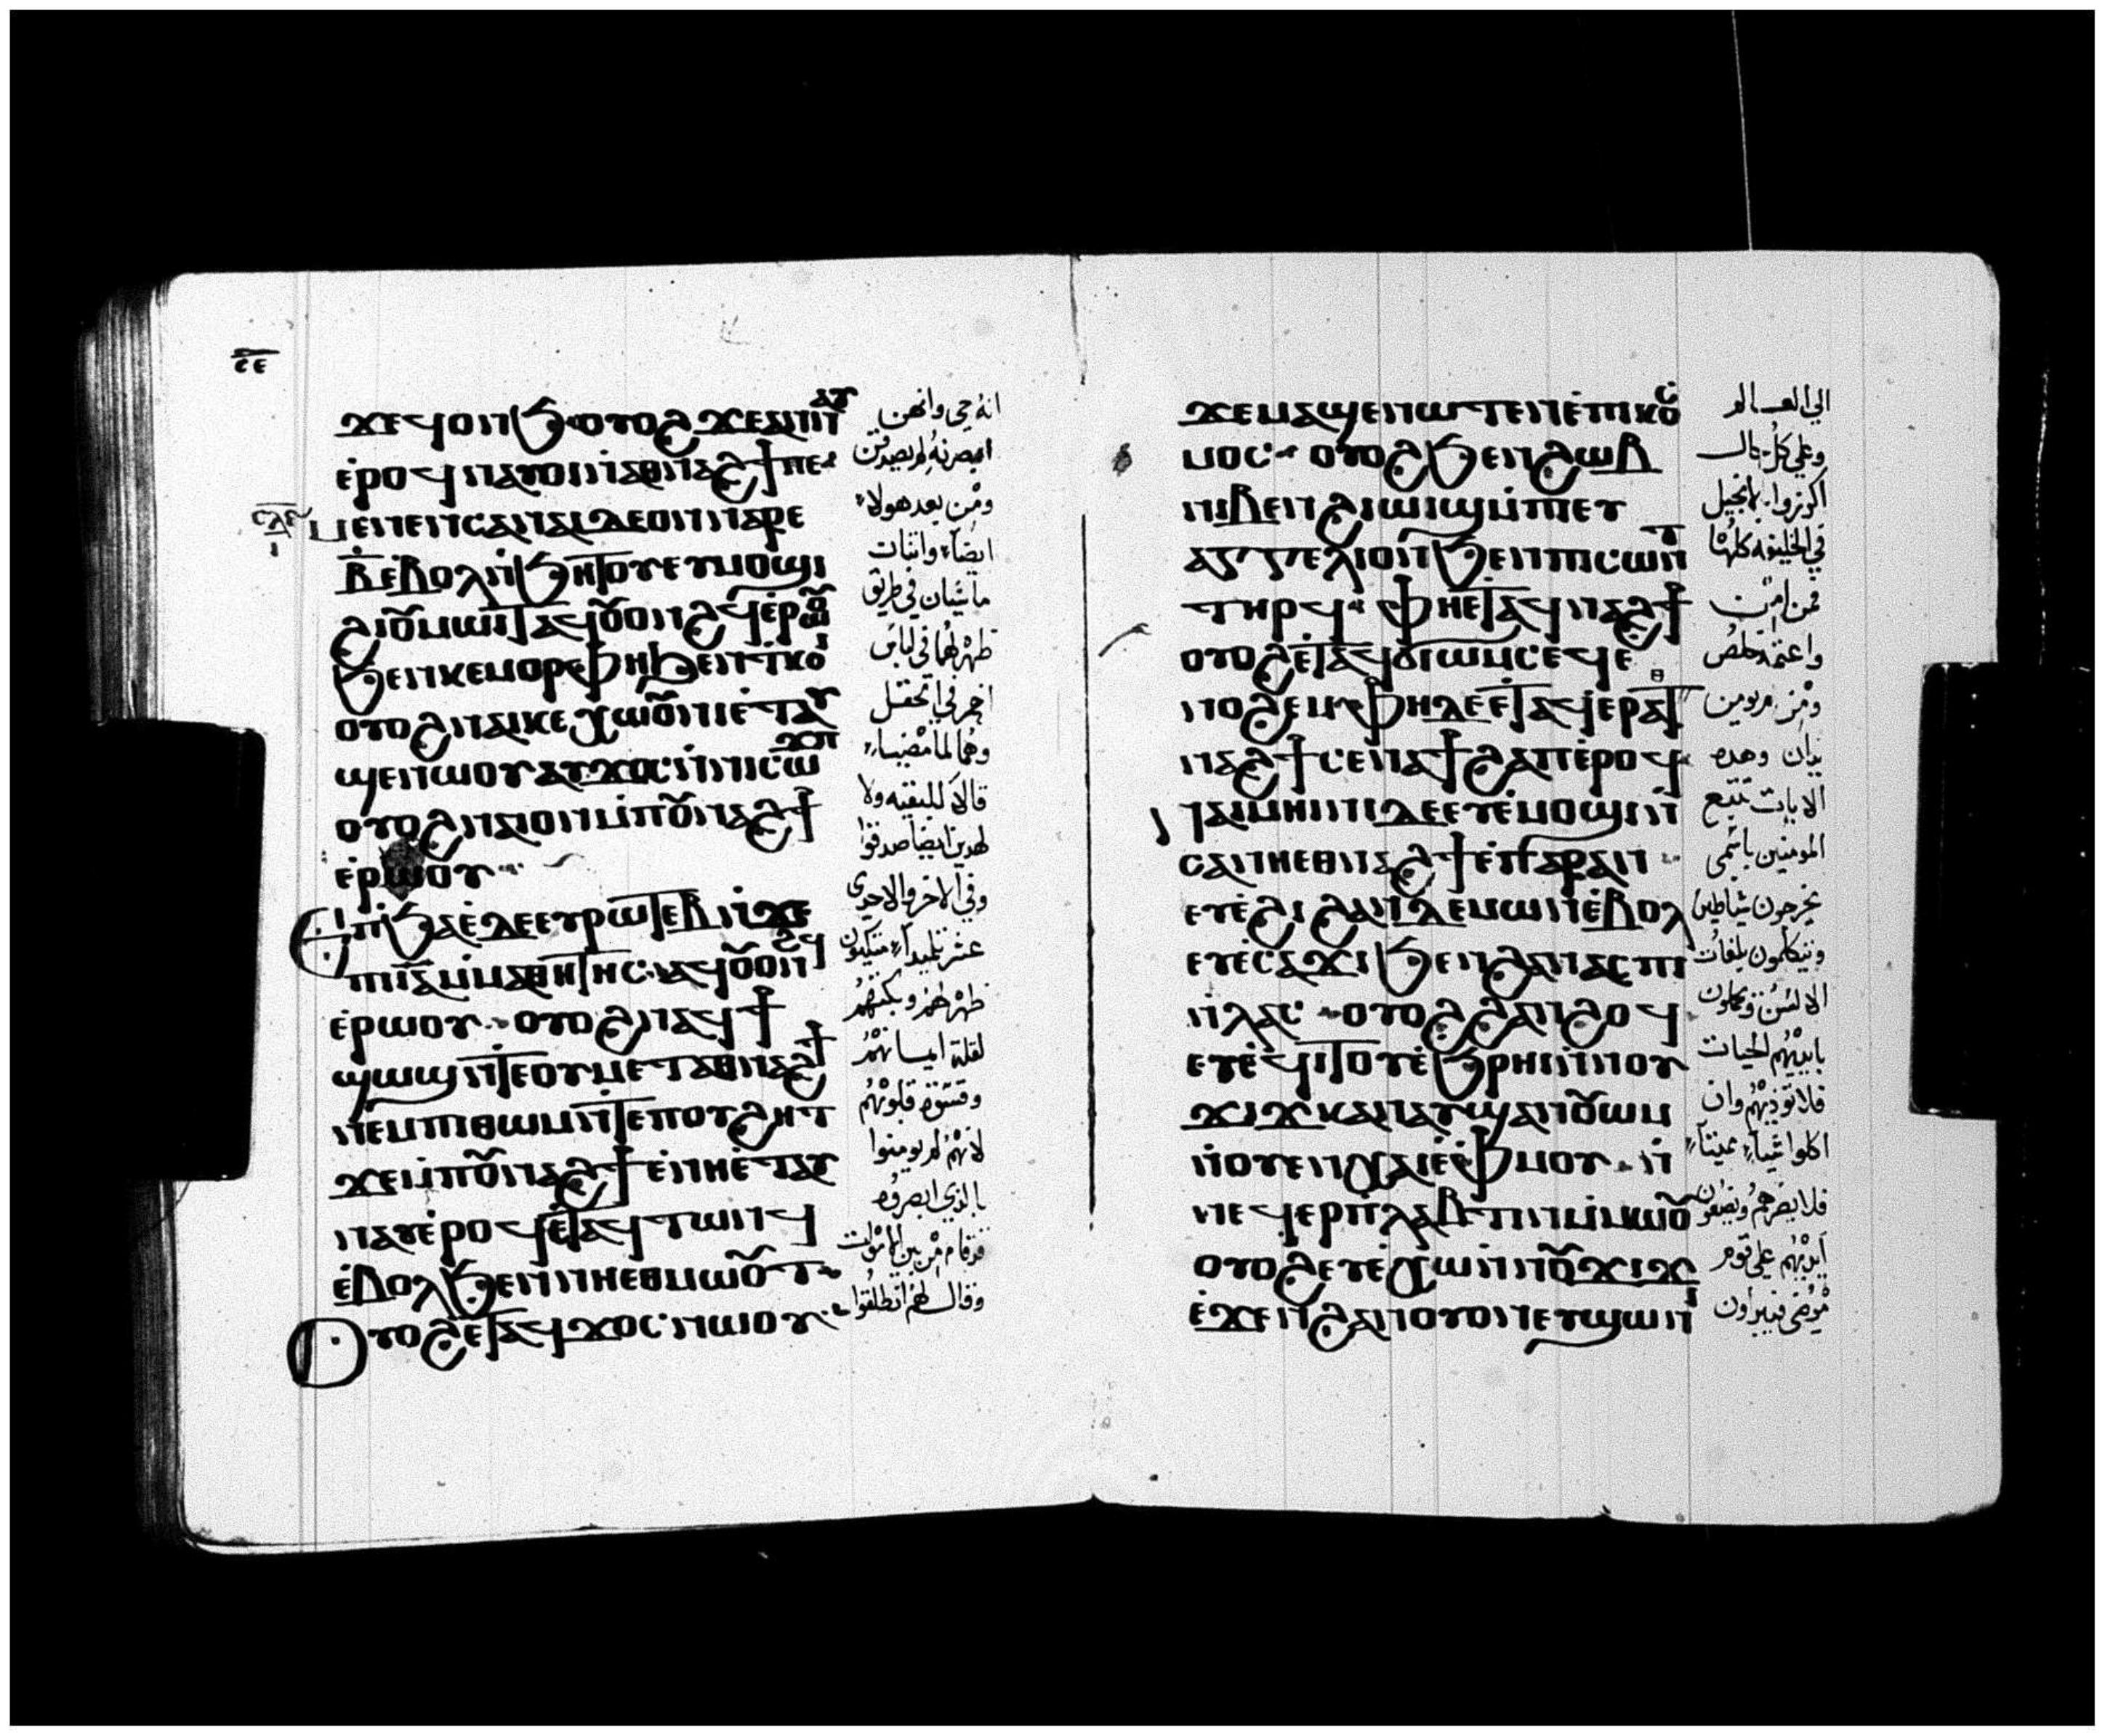 ⲥⲉ
ϫⲉϥⲟⲛϧ ⲟⲩⲟϩ ϫⲉⲁⲩⲛⲁⲩ
ⲉ̀ⲣⲟϥ ⲛⲁⲩⲟⲓ ⲛ̀ⲁⲑⲛⲁϩϯ ⲡⲉ
ⲙⲉⲛⲉⲛⲥⲁ ⲛⲁⲓ ⲇⲉ ⲟⲛ ⲛⲁⲣⲉ
ⲃ̄ ⲉⲃⲟⲗ ⲛ̀ϧⲏⲧⲟⲩ ⲉⲩⲙⲟϣⲓ
ϩⲓ ⲟⲩⲙⲱⲓⲧ ⲁϥⲟⲩⲟⲛϩϥ ⲉ̀ⲣⲱⲟⲩ
ϧⲉⲛ ⲕⲉⲙⲟⲣⲫⲏ ϧⲉⲛ ⲧⲕⲟⲓ
ⲟⲩⲟϩ ⲛⲁⲓⲕⲉⲭⲱⲟⲩⲛⲓ ⲉ̀ⲧⲁⲩ
ϣⲉⲛⲱⲟⲩ ⲁⲩϫⲟⲥ ⲙ̀ⲡⲥⲱϫⲡ
ⲟⲩⲟϩ ⲛⲁⲓ ⲟⲛ ⲙ̀ⲡⲟⲩⲛⲁϩϯ
ⲉ̀ⲣⲱⲟⲩ
Ⲉⲡϧⲁⲉ̀ ⲇⲉ ⲉⲩⲣⲱⲧⲉⲃ ⲛ̀ϫⲉ
ⲡⲓⲓ̅ⲁ̅ ⲙ̀ⲙⲁⲑⲏⲧⲏⲥ ⲁϥⲟⲩⲟⲛϩϥ
ⲉ̀ⲣⲱⲟⲩ ⲟⲩⲟϩ ⲛⲁϥϯ
ϣⲱϣ ⲛ̀ⲧⲟⲩⲙⲉⲧⲁⲑⲛⲁϩϯ
ⲛⲉⲙ ⲡⲓⲑⲱⲙ ⲛ̀ⲧⲉ ⲡⲟⲩϩⲏⲧ
ϫⲉ ⲙ̀ⲡⲟⲩⲛⲁϩϯ ⲉ̀ⲛⲏ ⲉ̀ⲧⲁⲩ
ⲛⲁⲩ ⲉ̀ⲣⲟϥ ⲉ̀ⲧⲁϥⲧⲱⲛϥ
ⲉ̀ⲃⲟⲗ ϧⲉⲛ ⲛⲏⲉⲑⲙⲱⲟⲩⲧ
Ⲟⲩⲟϩ ⲉⲧⲁϥϫⲟⲥ ⲛⲱⲟⲩ
انه حي وانهن
ابصرنه لم يصدقن
ومن بعد هولاء
ايضاء واثنان
ماشيان في طريق
ظهر لهما في لباس
اخر في الحقل
وهما لما مضيا
قالا للبقيه ولا
لهدين ايضا صدقوا
وفي الاخر والاحدى
عشر تلميدا متكيون
ظهر لهم وبكتهم
لقلة ايمانهم
وقسوة قلوبهم
لانهم لم يومنوا
بالذي ابصروه
قد قام من بين الاموات
وقال لهم انطلقوا
ϫⲉ ⲙⲁϣⲉⲛⲱⲧⲉⲛ ⲉ̀ⲡⲓⲕⲟⲥ
ⲙⲟⲥ ⲟⲩⲟϩ ϧⲉⲛ ϩⲱⲃ
ⲛⲓⲃⲉⲛ ϩⲓⲱⲓϣ ⲙ̀ⲡⲉⲩ
ⲁⲅⲅⲉⲗⲓⲟⲛ ϧⲉⲛ ⲡⲓⲥⲱⲛⲧ
ⲧⲏⲣϥ ⲫⲏ ⲉⲧⲁϥⲛⲁϩϯ
ⲟⲩⲟϩ ⲉ̀ⲧⲁϥϭⲓⲱⲙⲥ ⲉϥⲉ
ⲛⲟϩⲉⲙ ⲫⲏ ⲇⲉ ⲉⲧⲁϥⲉⲣⲁⲑ
ⲛⲁϩϯ ⲥⲉⲛⲁϯϩⲁⲡ ⲉ̀ⲣⲟϥ
ⲛⲁⲓⲙⲏⲓⲛⲓ ⲇⲉ ⲉⲩⲉ̀ⲙⲟϣⲓ ⲛ̀
ⲥⲁ ⲛⲏⲉⲑⲛⲁϩϯ ⲉ̀ⲡⲁⲣⲁⲛ
ⲉⲩⲉ̀ϩⲓ ϩⲁⲛⲇⲉⲙⲱⲛ ⲉ̀ⲃⲟⲗ
ⲉⲩⲉ̀ⲥⲁϫⲓ ϧⲉⲛ ϩⲁⲛⲁⲥⲡⲓ
ⲛ̀ⲗⲁⲥ ⲟⲩⲟϩ ϩⲁⲛϩⲟϥ
ⲉⲩⲉ̀ϥⲓⲧⲟⲩ ⲉ̀ϧⲣⲏⲓ ϧⲉⲛ ⲛⲟⲩ
ϫⲓϫ ⲕⲁⲛ ⲁⲩϣⲁⲛⲟⲩⲱⲙ
ⲛ̀ⲟⲩⲉⲛⲭⲁⲓ ⲉ̀ⲫⲙⲟⲩ ⲛ̀
ⲛⲉϥⲉⲣⲃⲗⲁⲡⲧⲓⲛ ⲙ̀ⲙⲱⲟⲩ
ⲟⲩⲟϩ ⲉⲩⲉ̀ⲭⲱ ⲛ̀ⲛⲟⲩϫⲓϫ
ⲉ̀ϫⲉⲛ ϩⲁⲛⲟⲩⲟⲛ ⲉⲩϣⲱⲛⲓ
الي العالم
وعلي كل حال
اكرزوا بالانجيل
في الخليقه كلها
فمن امن
واعتمد تخلص
ومن لم يومن
يدان وهده
الايات تتبع
المومنين باسمي
يخرجون شياطين
ويتكلمون بلغات
الالسن ويحملون
بايديهم الحيات
فلا تؤذيهم وان
اكلوا شيا مميتا
فلا يضرهم ويضعون
ايديهم علي قوم
مرضي فيبراون